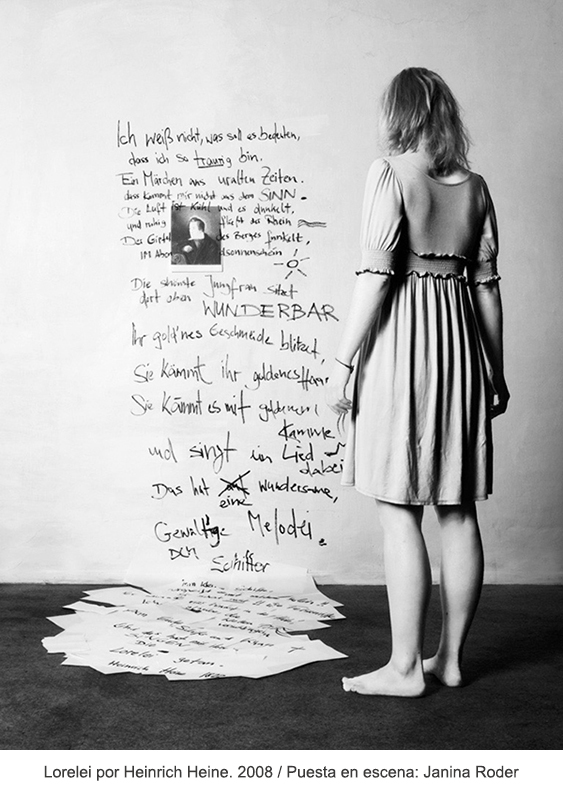 Ich weiß nicht, was soll es bedeuten,
dass ich so traurig bin.
Ein Märchen aus uralten Zeiten.
dass kommt mir nicht aus dem SINN.
Die Luft ist kühl und es dunkelt,
und ruhig fließt der Rhein
Der Gipfel des Berges funkelt,
IM Aben dsonnenschein
Die schönste Jungfrau sitzt
dort oben
WUNDERBAR
Ihr gold'nes Geschmeide blitzet,
Sie kämmt ihr goldenes Haar
Sie kämmt es mit goldenem
Kamme
und singt ein Lied
dabei
Das hat eine wundersame,
Gewalt'ge Melodei.
DEN
Schiffer
Lorelei getan.
Heinrich Heine
Lorelei por Heinrich Heine. 2008 / Puesta en escena: Janina Roder